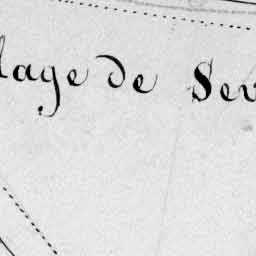 lage de Sev